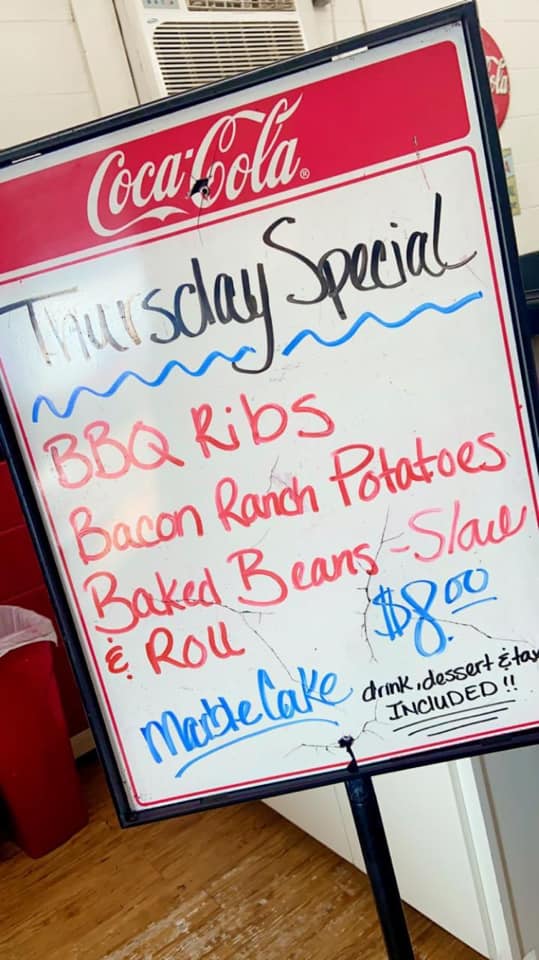 Coca-Cola
Thursday Special
BBQ Ribs
Bacon Ranch Potatoes
Baked Beans - Slaw
& Roll
$8.00
Marble Cake
drink, dessert & tax
INCLUDED!!